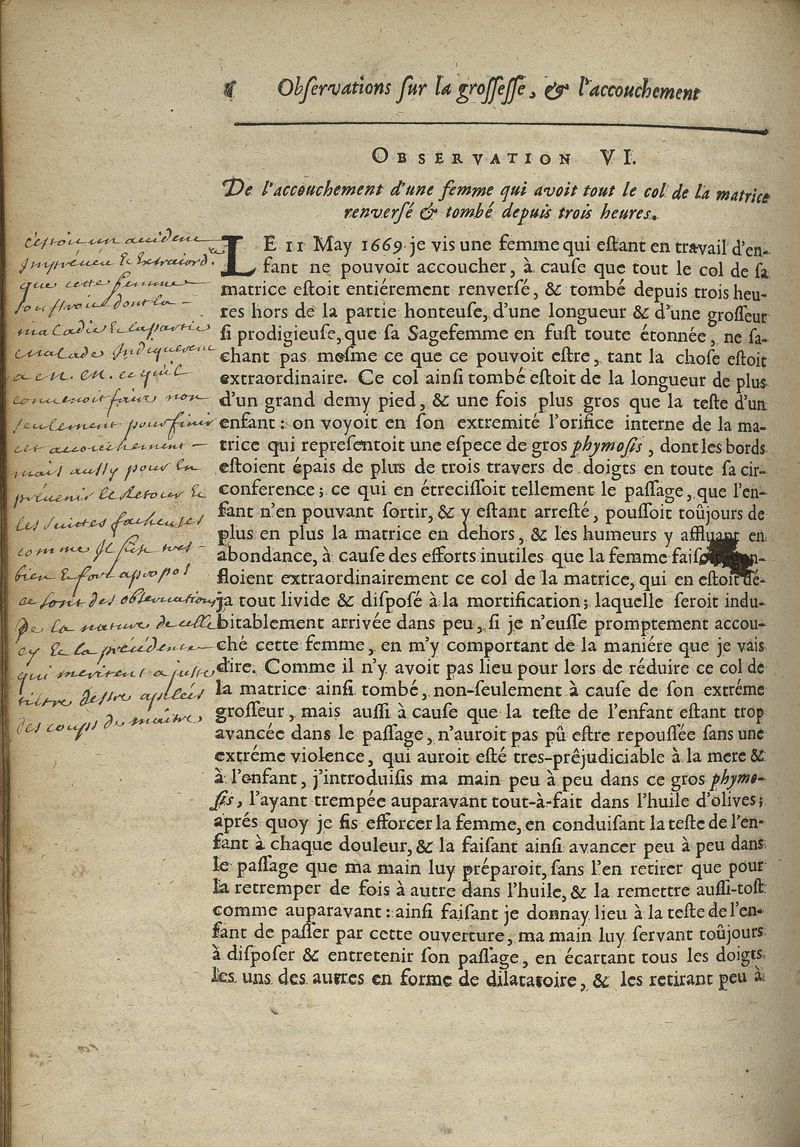 Obſervations ſur la groſſeſſe, & l'accouchement
OBSERVATION VI.
De l'accouchement d'une femme qui avoit tout le col de la matrice
renverſé & tombé depuis trois heures.
LE 11 May 1669 je vis une femme qui eſtant en travail d'en-
fant ne pouvoit accoucher, à cauſe que tout le col de ſa
matrice eſtoit entiérement renverſé, & tombé depuis trois heu-
res hors de la partie honteuſe, d'une longueur & d'une groſſeur
ſi prodigieuſe, que ſa Sagefemme en fuſt toute étonnée, ne ſa-
chant pas meſme ce que ce pouvoit eſtre, tant la choſe eſtoit
extraordinaire. Ce col ainſi tombé eſtoit de la longueur de plus
d'un grand demy pied, & une fois plus gros que la teſte d'un
enfant: on voyoit en ſon extremité l'orifice interne de la ma-
trice qui repreſentoit une eſpece de gros phymoſis, dont les bords
eſtoient épais de plus de trois travers de doigts en toute ſa cir-
conference; ce qui en étreciſſoit tellement le paſſage, que l'en-
fant n'en pouvant ſortir, & y eſtant arreſté, pouſſoit toûjours de
plus en plus la matrice en dehors, & les humeurs y affluant en
abondance, à cauſe des efforts inutiles que la femme faiſo n-
floient extraordinairement ce col de la matrice, qui en eſtoit dé-
ja tout livide & diſpoſé à la mortification; laquelle ſeroit indu-
bitablement arrivée dans peu, ſi je n'euſſe promptement accou-
ché cette femme, en m'y comportant de la maniére que je vais
dire. Comme il n'y avoit pas lieu pour lors de réduire ce col de
la matrice ainſi tombé, non-ſeulement à cauſe de ſon extréme
groſſeur, mais auſſi à cauſe que la teſte de l'enfant eſtant trop
avancée dans le paſſage, n'auroit pas pû eſtre repouſſée ſans une
extréme violence, qui auroit eſté tres-prêjudiciable à la mere &
à l'enfant, j'introduiſis ma main peu à peu dans ce gros phymo-
ſis, l'ayant trempée auparavant tout-à-fait dans l'huile d'olives;
aprés quoy je fis efforcer la femme, en conduiſant la teſte de l'en-
fant à chaque douleur, & la faiſant ainſi avancer peu à peu dans
le paſſage que ma main luy préparoit, ſans l'en retirer que pour
la retremper de fois à autre dans l'huile, & la remettre auſſi-toſt
comme auparavant: ainſi faiſant je donnay lieu à la teſte de l'en-
fant de paſſer par cette ouverture, ma main luy ſervant toûjours
à diſpoſer & entretenir ſon paſſage, en écartant tous les doigts
les uns des autres en forme de dilatatoire, & les retirant peu à
c'estoit un accident
Impréveu & Extraord.
que cette femme
souffroit dont la
maladie & la partie
malade Indiquerent
a m. m. ce quil
convenoit faire non
seulement pour finir
cet accouchement
mais aussy pour en
prévenir le retour &
les suietes facheuses
comme Il fist tres
bien & fort apropos
ce sont des observations
de la nature de celle
cy & la précédente
qui meritent a juste
tiltre destre apellés
des coups de maitre